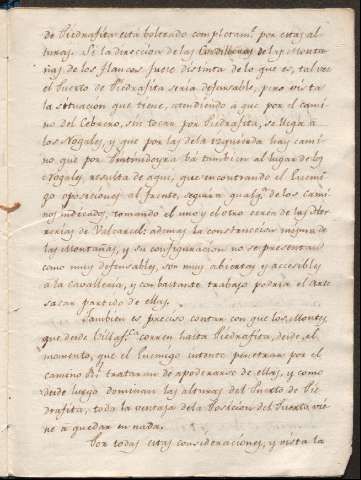 de Piedrafita está bolteado completam.te por estas al
turas. Si la direccion de las Cordilleras de las Monta
ñas de los flancos fuese distinta de lo que es, tal vez
el Puerto de Piedrafita seria defensable, pero vista
la situacion que tiene, atendiendo á que por el cami
no del Cebrero, sin tocar por Piedrafita, se llega á
los Nogales, y que por las de la izquierda hay cami
no que por vá tambien al lugar de los
Nogales, resulta de aqui, que encontrando el Enemi
go oposiciones al frente, seguirá qualq.a de los cami
nos indicados, tomando el uno y el otro cerca de las Her
rerias de Valcarcel: ademas la construccion misma de
las Montañas, y su configuracion no se presentan
como muy defensables, son muy abiertas y accesibles
á la cavalleria, y con bastante trabajo podria el Arte
sacar partido de ellas.
Tambien es preciso contar con que los Montes
que desde Villaf.ca corren hasta Piedrafita, desde el
momento, que el Enemigo intente penetrar por el
camino R.l tratarán de apoderarse de ellas, y como
desde luego dominan las alturas del Puerto de Pie
drafita, toda la ventaja de la Posicion del Puerto vie
ne á quedar en nada.
Por todas estas consideraciones, y vista la